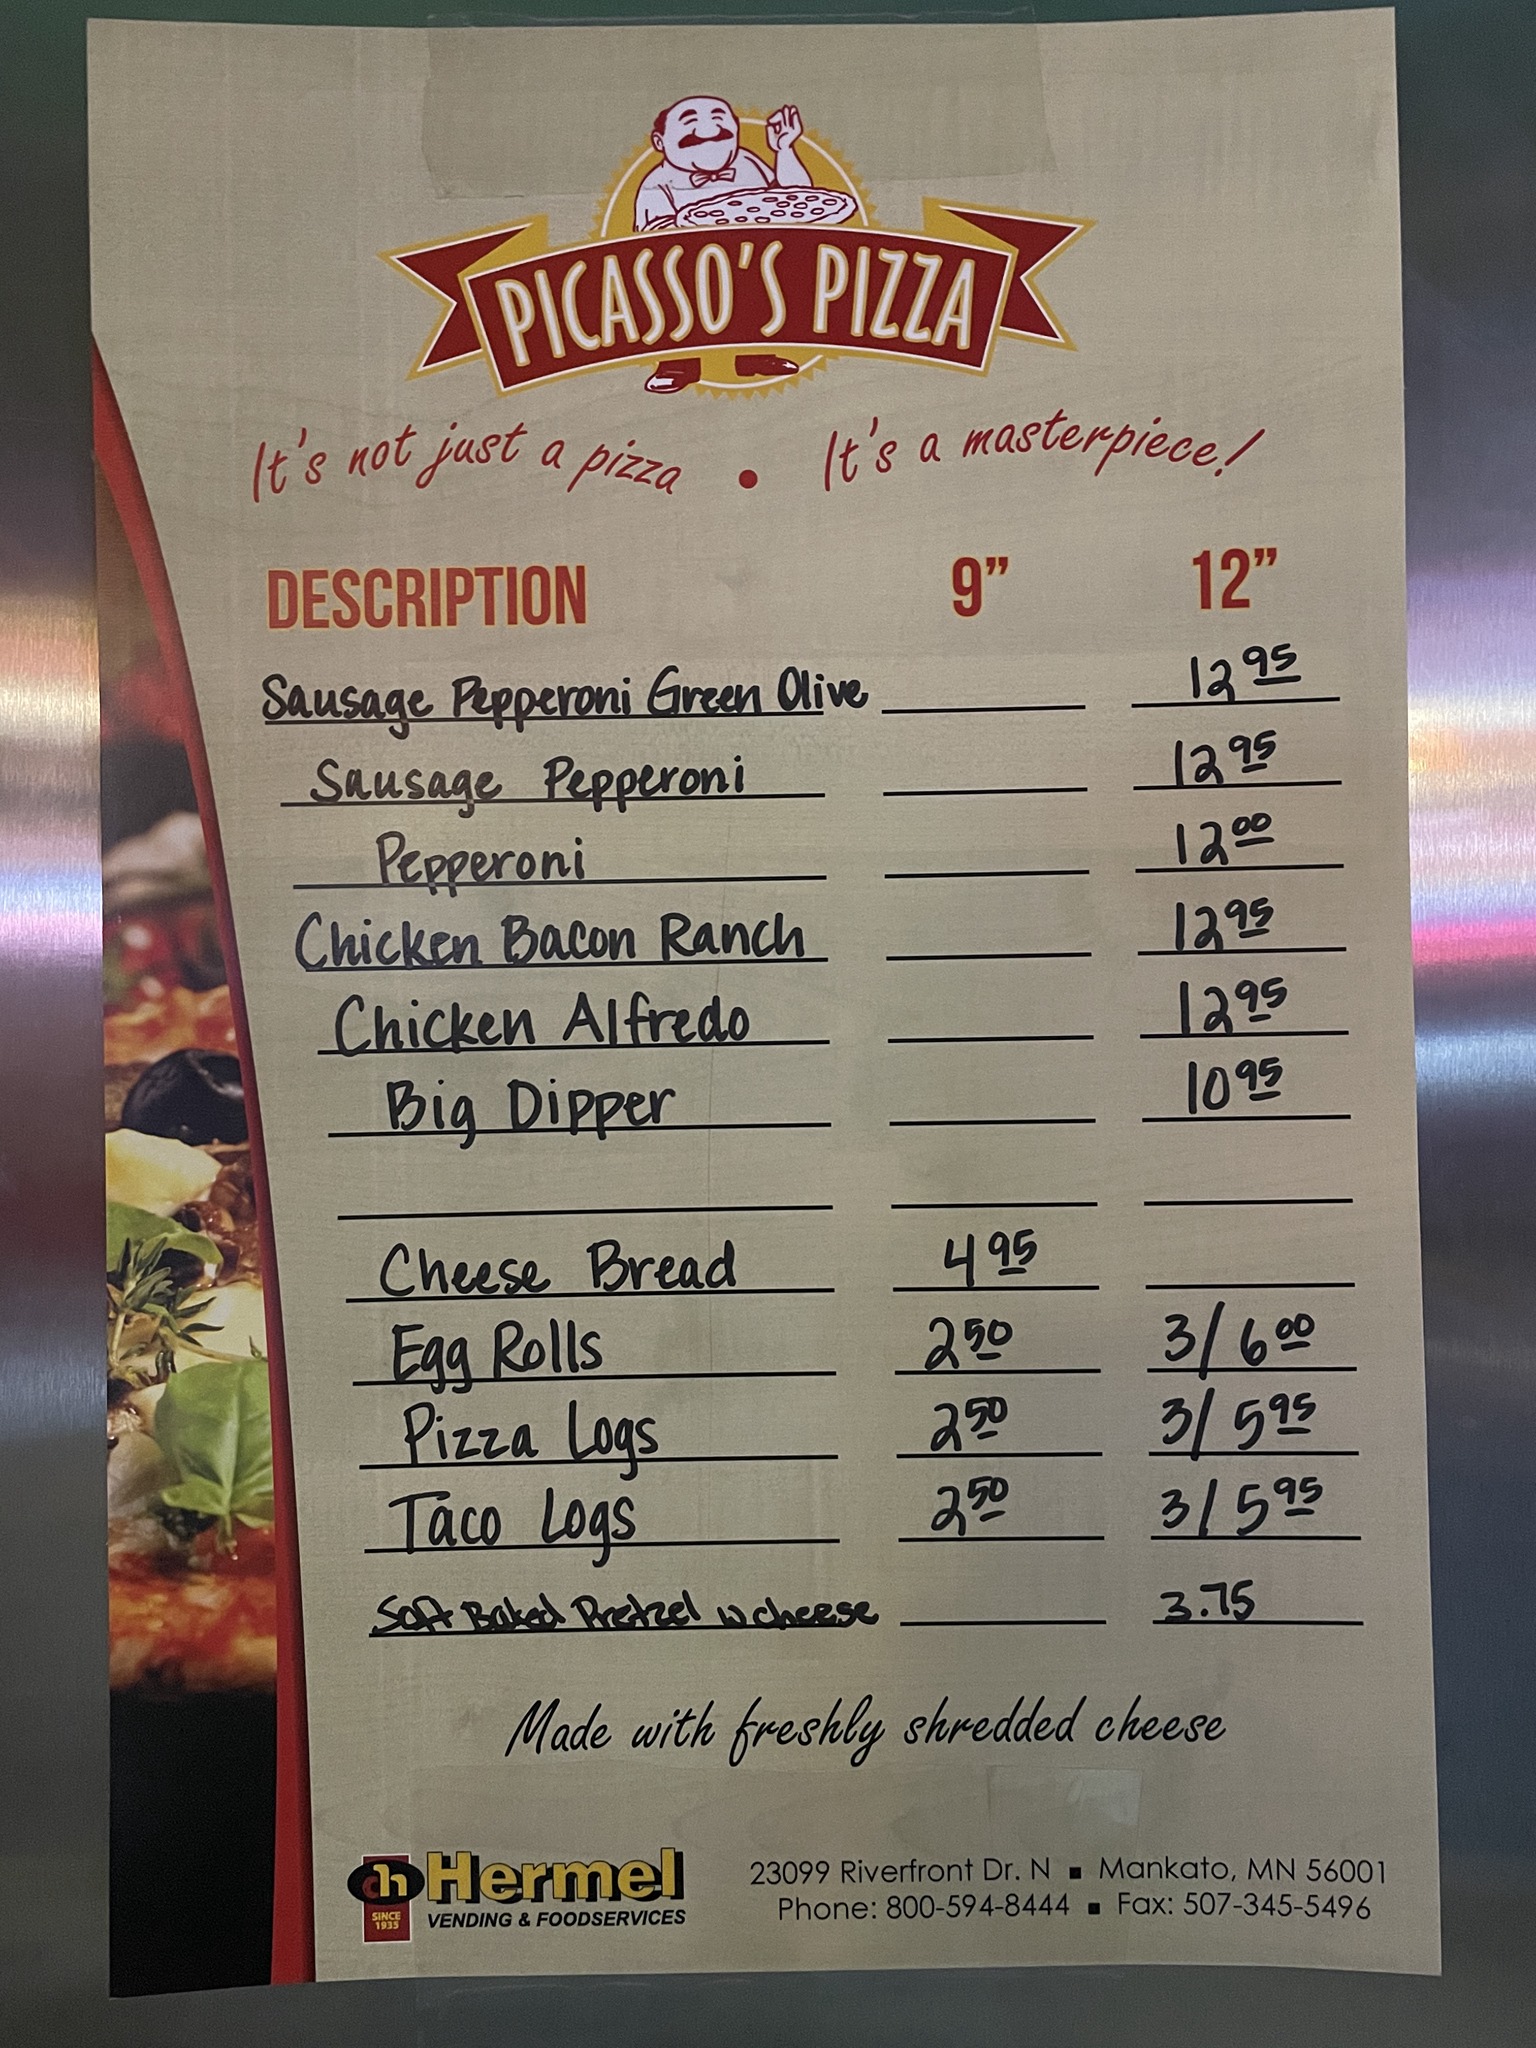 PICASSO'S PIZZA
It's not just a pizza • It's a masterpiece!
DESCRIPTION 9" 12"
Sausage Pepperoni Green Olive 12 95
Sausage Pepperoni 12 95
Pepperoni 12 00
Chicken Bacon Ranch 12 95
Chicken Alfredo 12 95
Big Dipper 10 95
Cheese Bread 4 95
Egg Rolls 2 50 3/ 6 00
Pizza Logs 2 50 3/ 5 95
Taco Logs 2 50 3/ 5 95
Soft Baked Pretzel w cheese 3.75
Made with freshly shredded cheese
ch Hermel
SINCE 1935
VENDING & FOODSERVICES
23099 Riverfront Dr. N ▪ Mankato, MN 56001
Phone: 800-594-8444 ▪ Fax: 507-345-5496